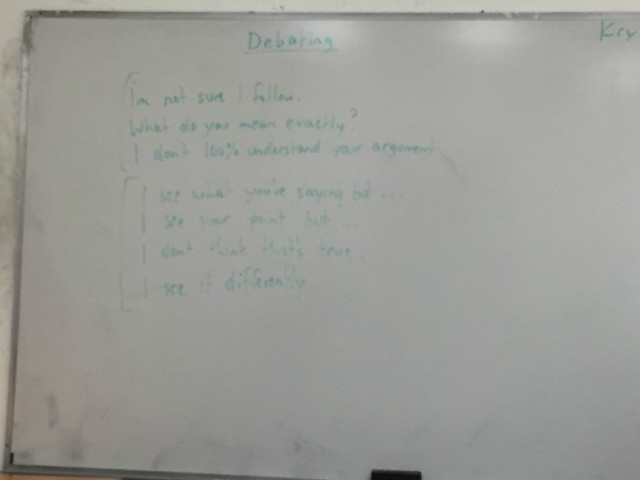 Debating
I'm not sure I follow.
What do you mean exactly?
I don't 100% understand your argument
I see what you're saying but ...
I see your point but ...
I don't think that's true.
I see it differently.